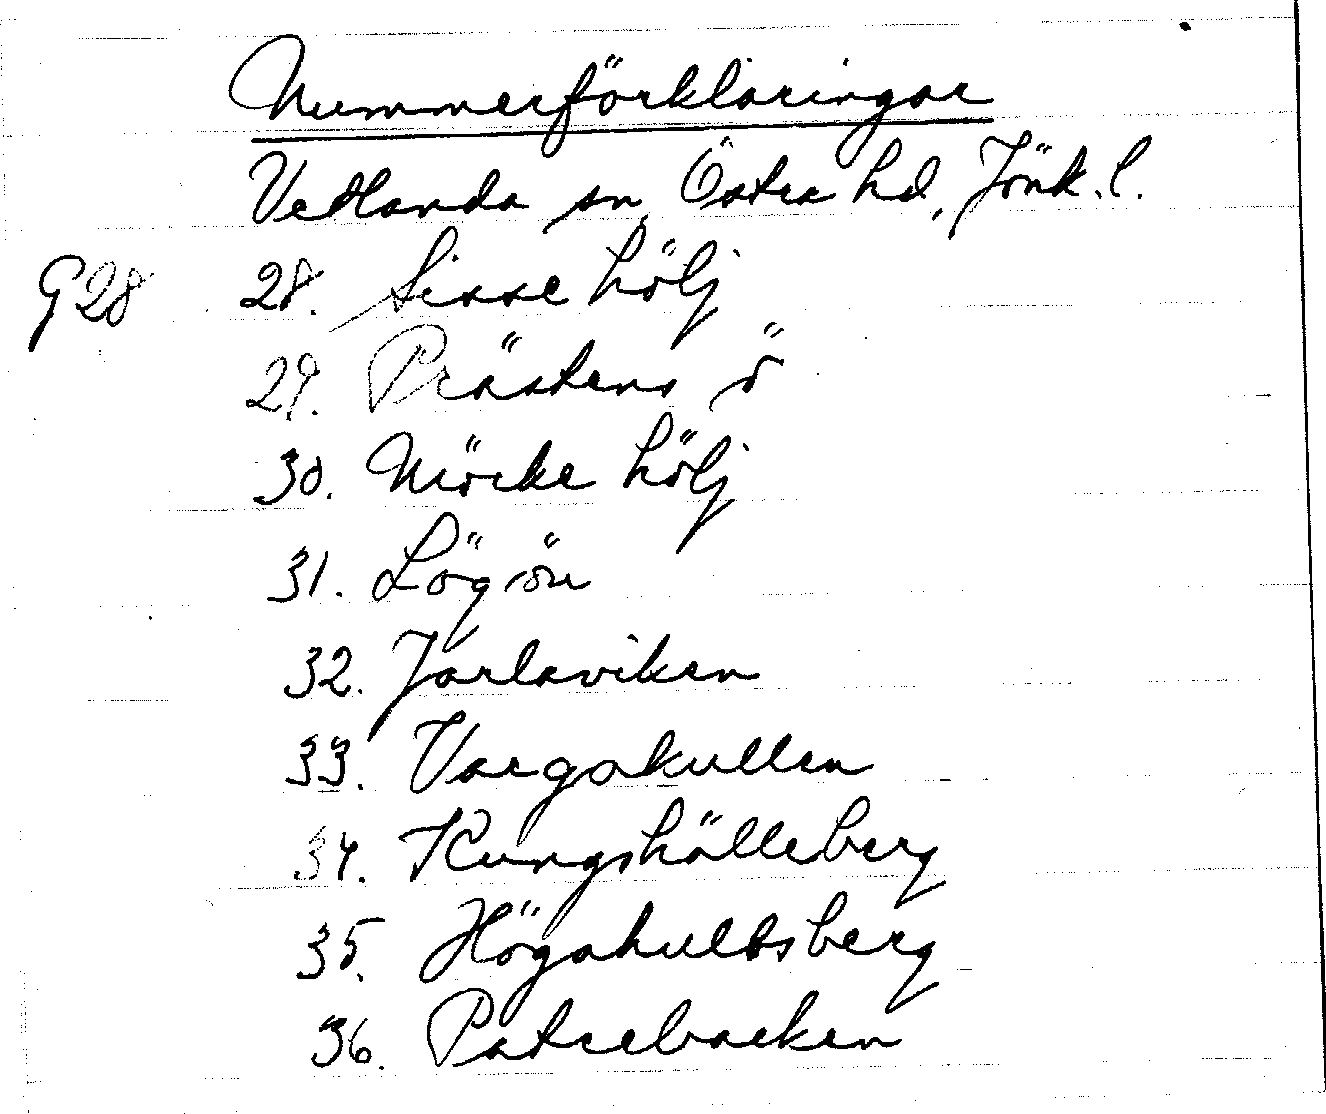 Nummerförklaringar
Vetlanda sn, Östra hd, Jönk. l.
G28 28. Sisse hölj
29. Prästens ö
30. Mörke hölj
31. Lögön
32. Jarlaviken
33. Vargakullen
34. Kungshälleberg
35. Högahultsberg
36. Patrebacken